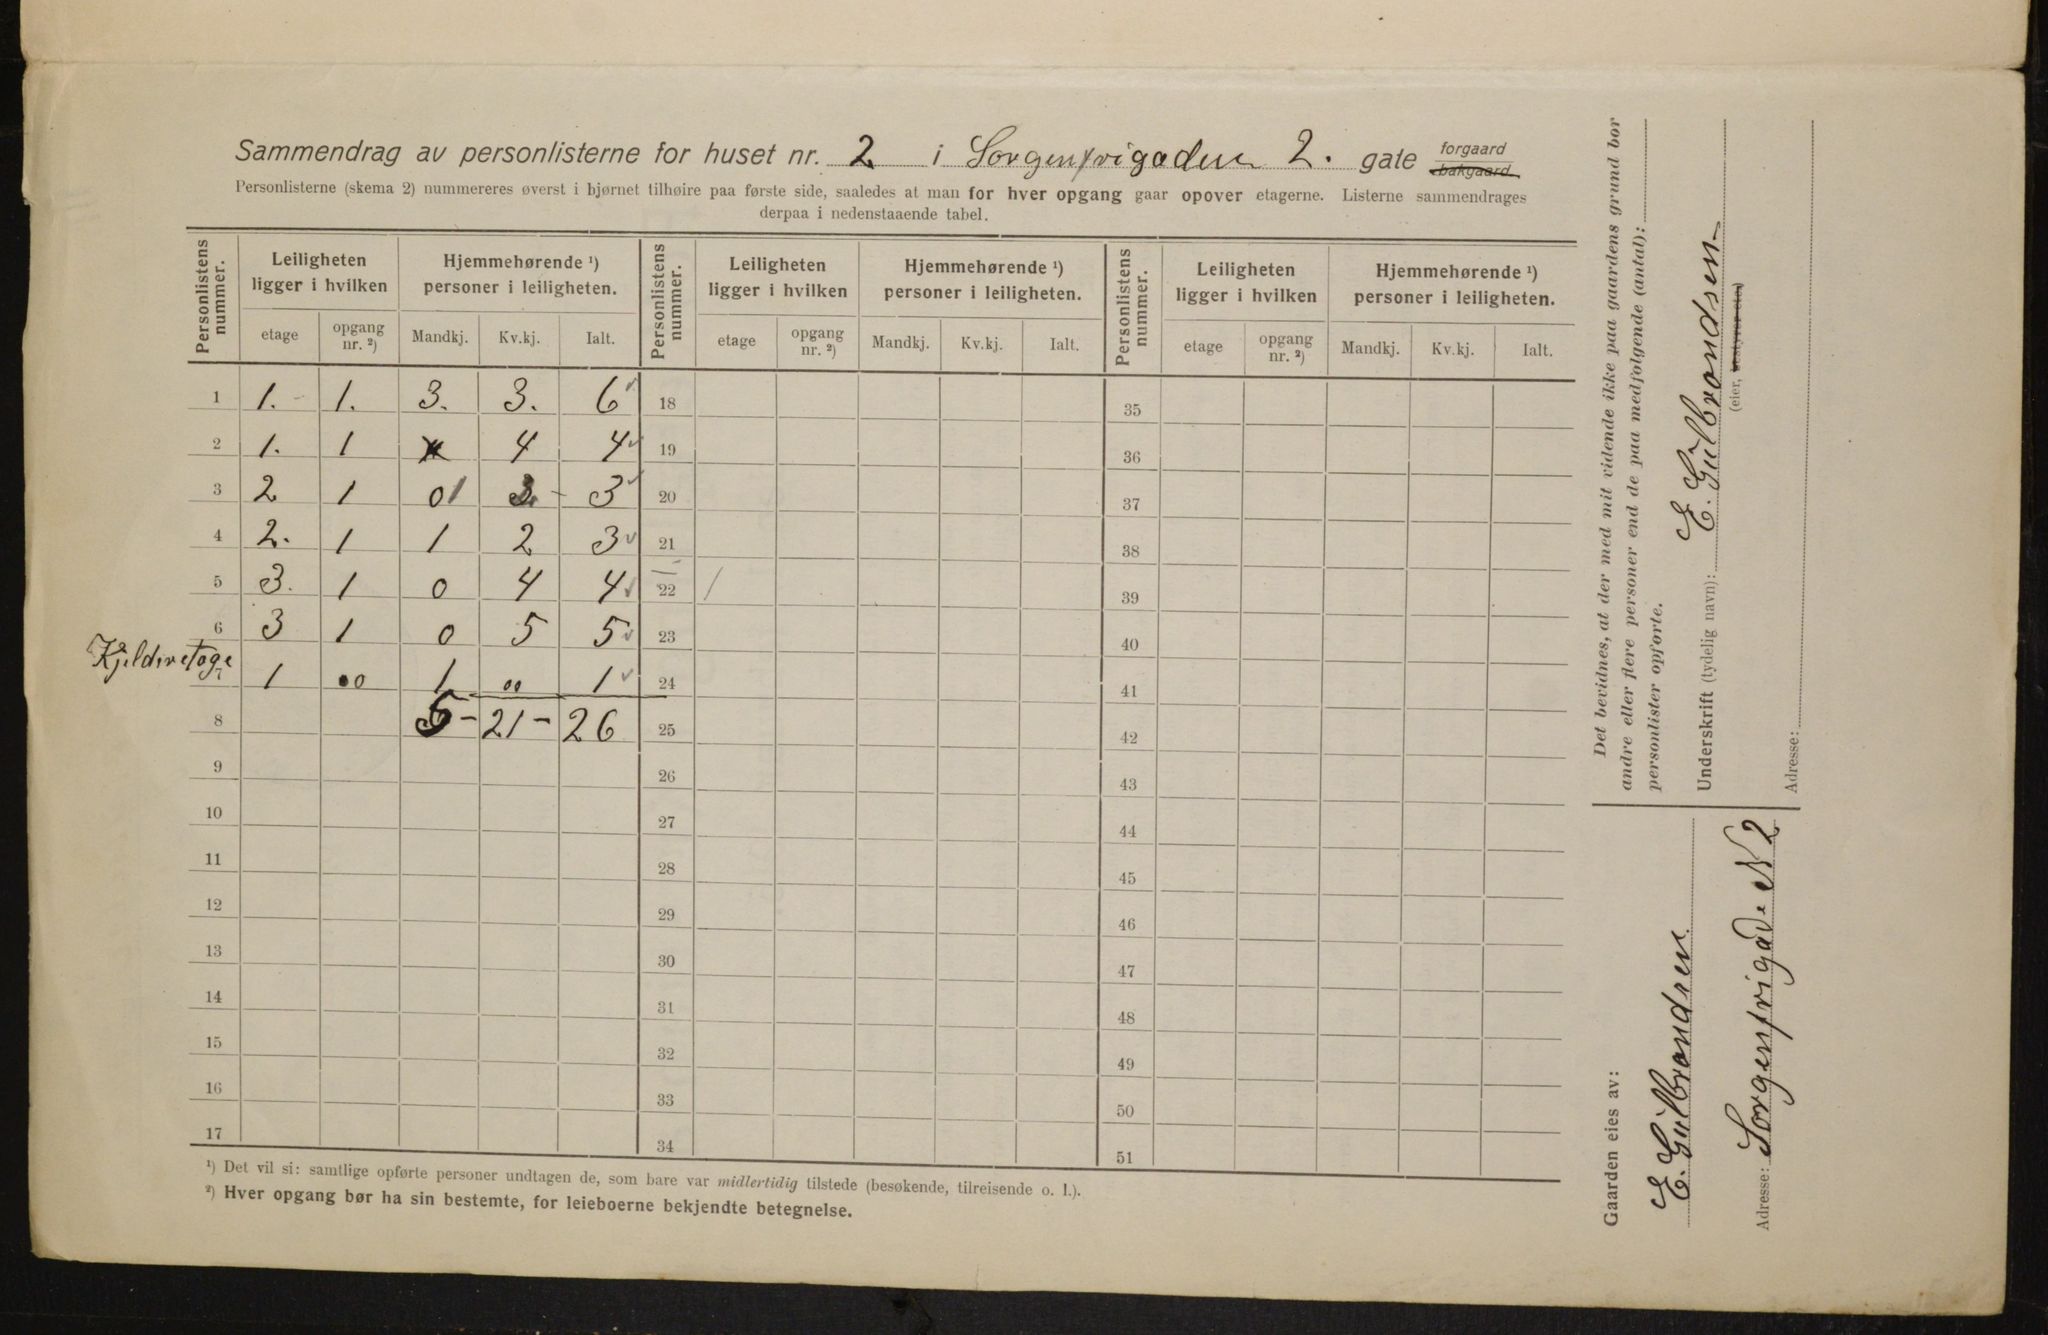 Sammendrag av personlisterne for huset nr. 2 i Sorgenfrigaden 2. gate forgaard bakgaard.
Personlisterne (skema 2) nummereres øverst i hjørnet tilhøire paa første side, saaledes at man for hver opgang gaar opover etagerne. Listerne sammendrages
derpaa i nedenstaaende tabel.
Personlistens nummer. Leiligheten ligger i hvilken Hjemmehørende ¹) personer i leiligheten. Personlistens nummer. Leiligheten ligger i hvilken Hjemmehørende ¹) personer i leiligheten. Personlistens nummer. Leiligheten ligger i hvilken Hjemmehørende ¹) personer i leiligheten.
etage opgang nr. ²) Mandkj. Kv.kj. Ialt. etage opgang nr. ²) Mandkj. Kv.kj. Ialt. etage opgang nr. ²) Mandkj. Kv.kj. Ialt.
1 1. 1. 3. 3. 6 18 35
2 1. 1 4 4 19 36
3 2 1 0 1 3 20 37
4 2. 1 1 2 3 21 38
5 3. 1 0 4 4 22 / 39
6 3 1 0 5 5 23 40
Kjelderetage
7 1 00 1 00 1 24 41
8 5 - 21 - 26 25 42
9 26 43
10 27 44
11 28 45
12 29 46
13 30 47
14 31 48
15 32 49
16 33 50
17 34 51
¹) Det vil si: samtlige opførte personer undtagen de, som bare var midlertidig tilstede (besøkende, tilreisende o. l.).
²) Hver opgang bør ha sin bestemte, for leieboerne bekjendte betegnelse.
Det bevidnes, at der med mit vidende ikke paa gaardens grund bor
andre eller flere personer end de paa medfølgende (antal):
personlister opførte.
Underskrift (tydelig navn): E. Gülbrandsen
(eier, bestyrer etc.)
Adresse:
Gaarden eies av:
E. Gülbrandsen.
Adresse: Sorgenfrigade N 2